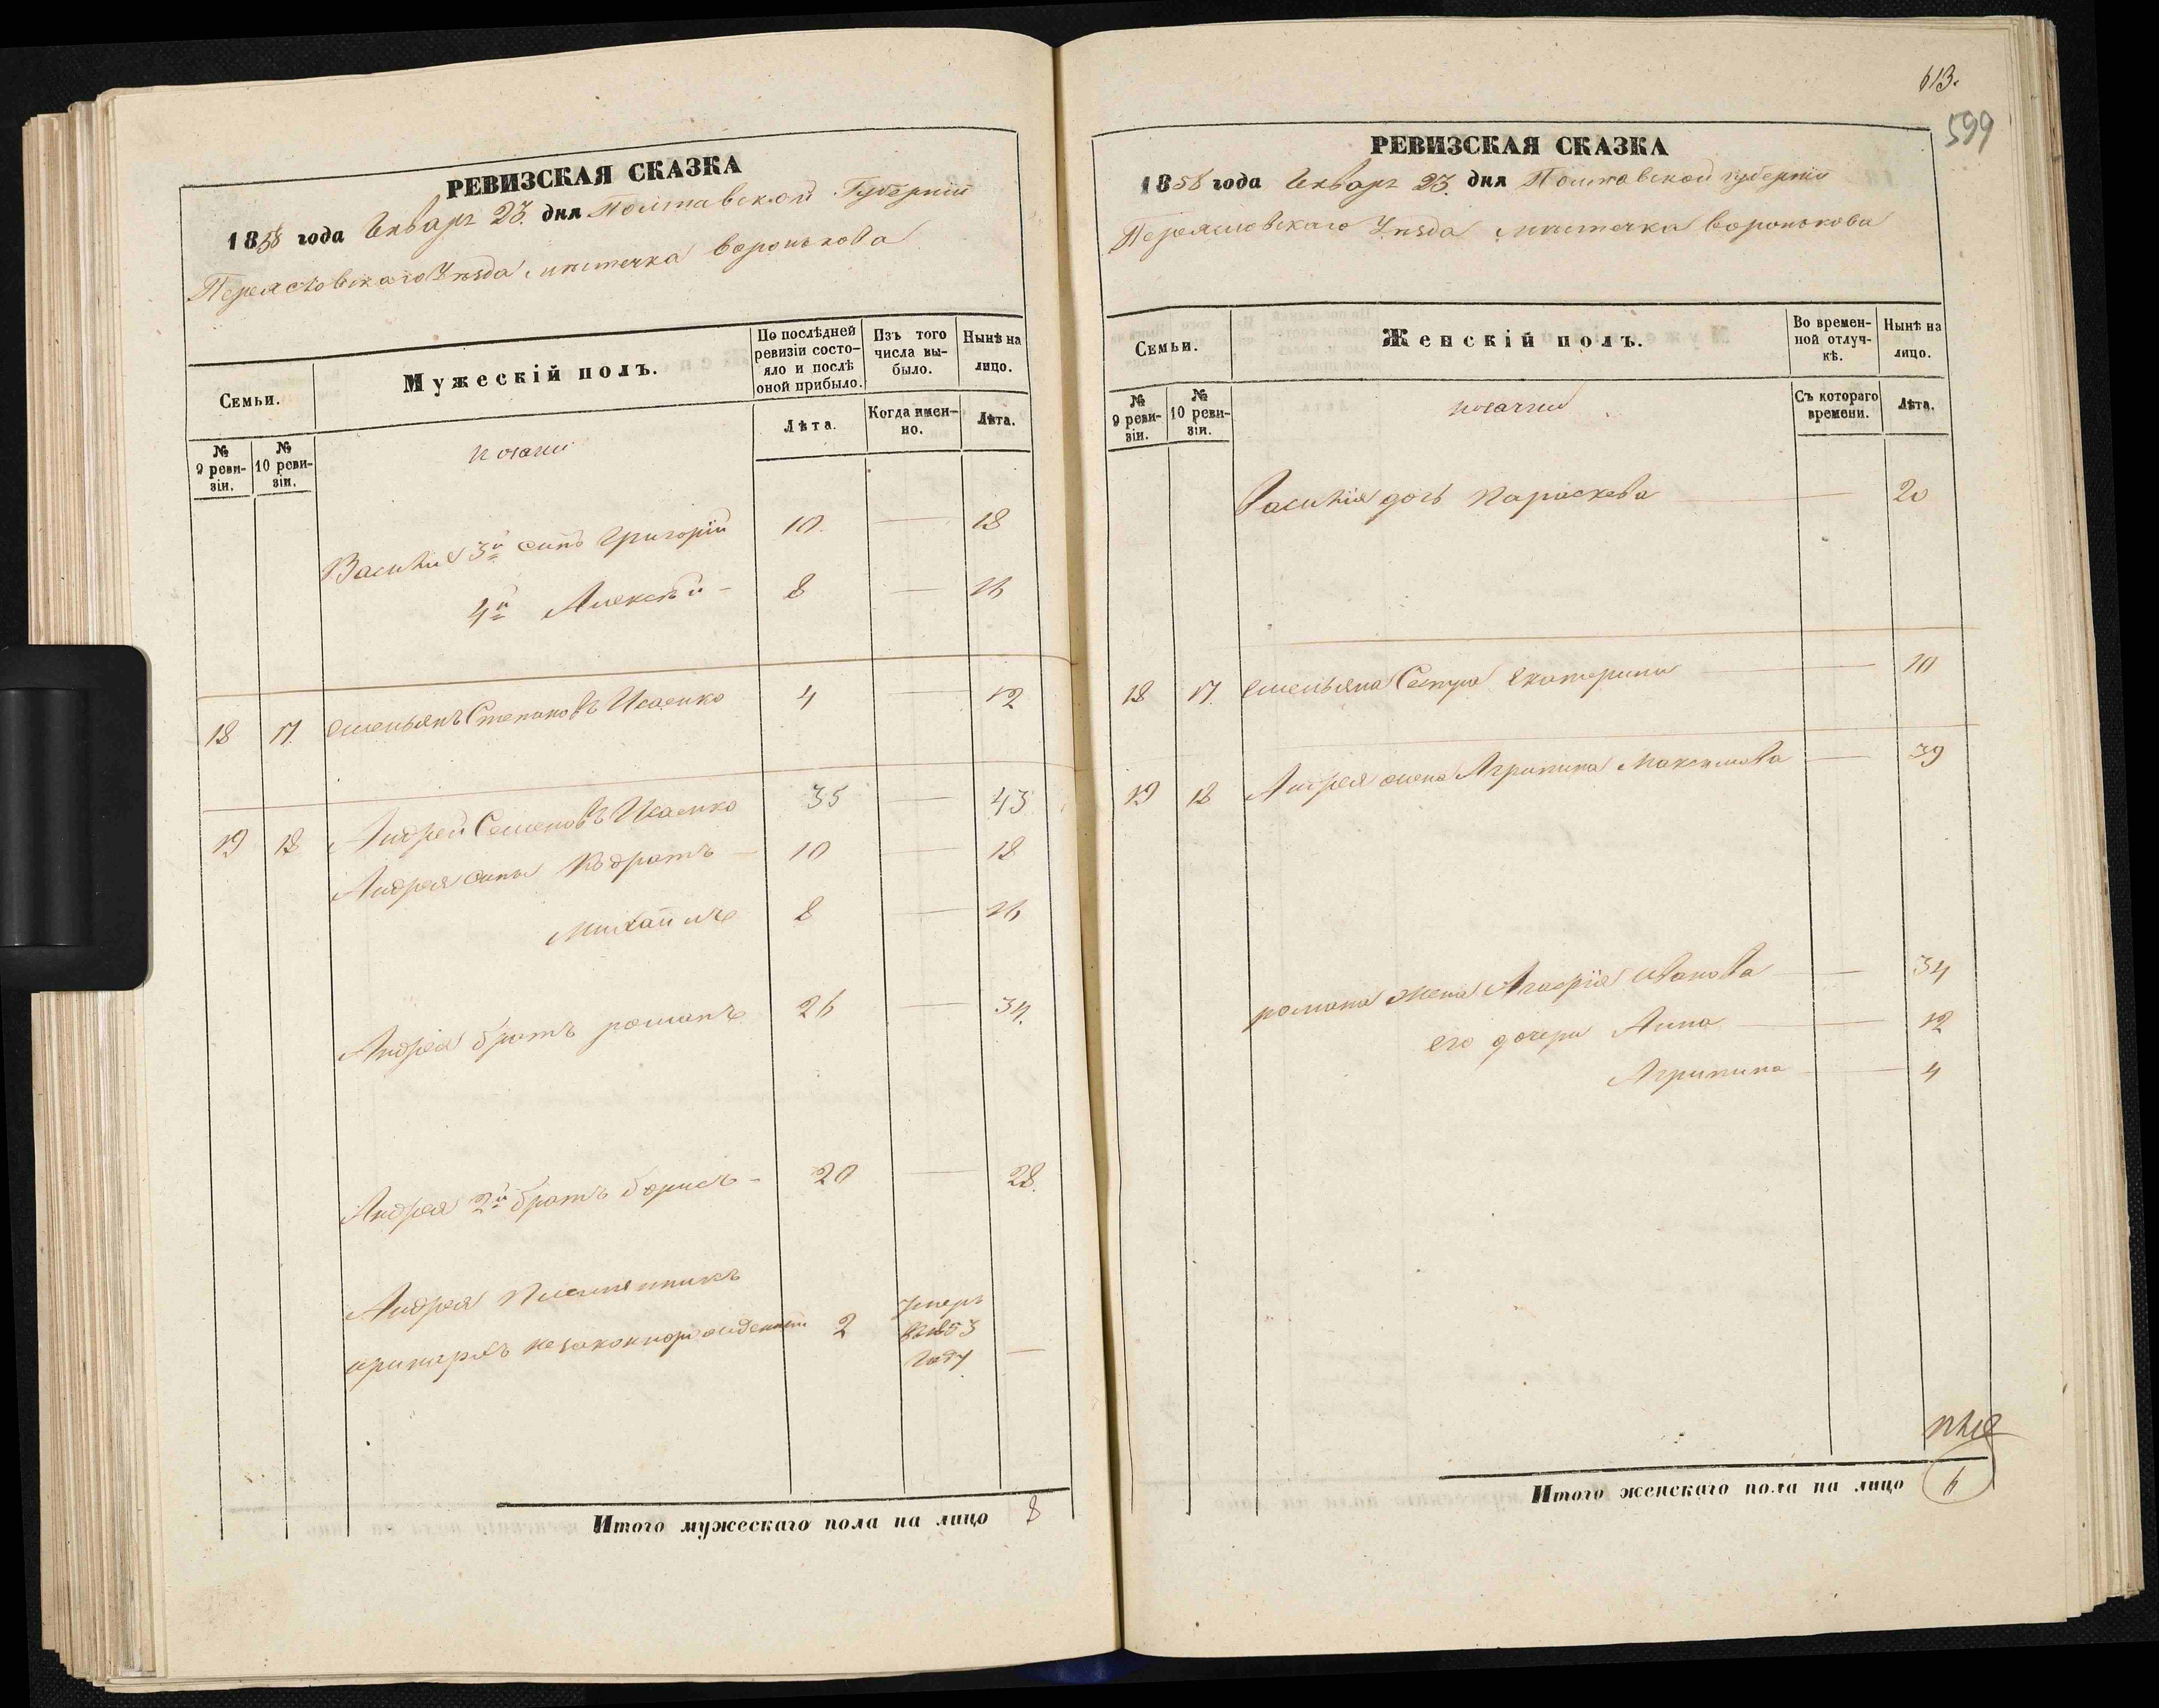 РЕВИЗСКАЯ СКАЗКА
1858 года Генваря 23. дня Полтавской Губерніи
Переясловскаго Уѣзда мѣстечка Воронькова
Семьи.
Мужескій полъ.
По послѣдней ревизіи состояло и послѣ оной прибыло.
Изъ того числа выбыло.
Нынѣ на лицо.
№ 9 ревизіи.
№ 10 ревизіи.
Лѣта.
Когда именно.
Лѣта.
Василія 3й сынъ Григорій 10. — 18
4й Алексѣй - 8 — 16
18 17. Емельянъ Степановъ Исаенко 4 — 12
19 18 Андрей Семеновъ Исаенко 35 — 43
Андрея сыны Кодратъ — 10 — 18
Михаилъ 8 — 16
Андрея братъ романъ 26 — 34.
Андрея 2й братъ борисъ - 20 — 28.
Андрея Племянникъ
незаконнорожденный 2 Умеръ
въ 1853
году —
Итого мужескаго пола на лицо 8
613.
599
РЕВИЗСКАЯ СКАЗКА
1858 года Генваря 23. дня Полтавской губерніи
Переясловскаго Уѣзда мѣстечка Воронькова
Семьи.
Женскій полъ.
Во временной отлучкѣ.
Нынѣ на лицо.
№ 9 ревизіи.
№ 10 ревизіи.
Съ котораго времени.
Лѣта.
Василія дочь Параскева — 20
18 17. Емельяна Сестра Екатерина — 10
19 18 Андрея жена Агрипина Максимова — 39
романа жена Иванова — 34
его дочери Анна — 12
Агрипина — 4
Итого женскаго пола на лицо 6